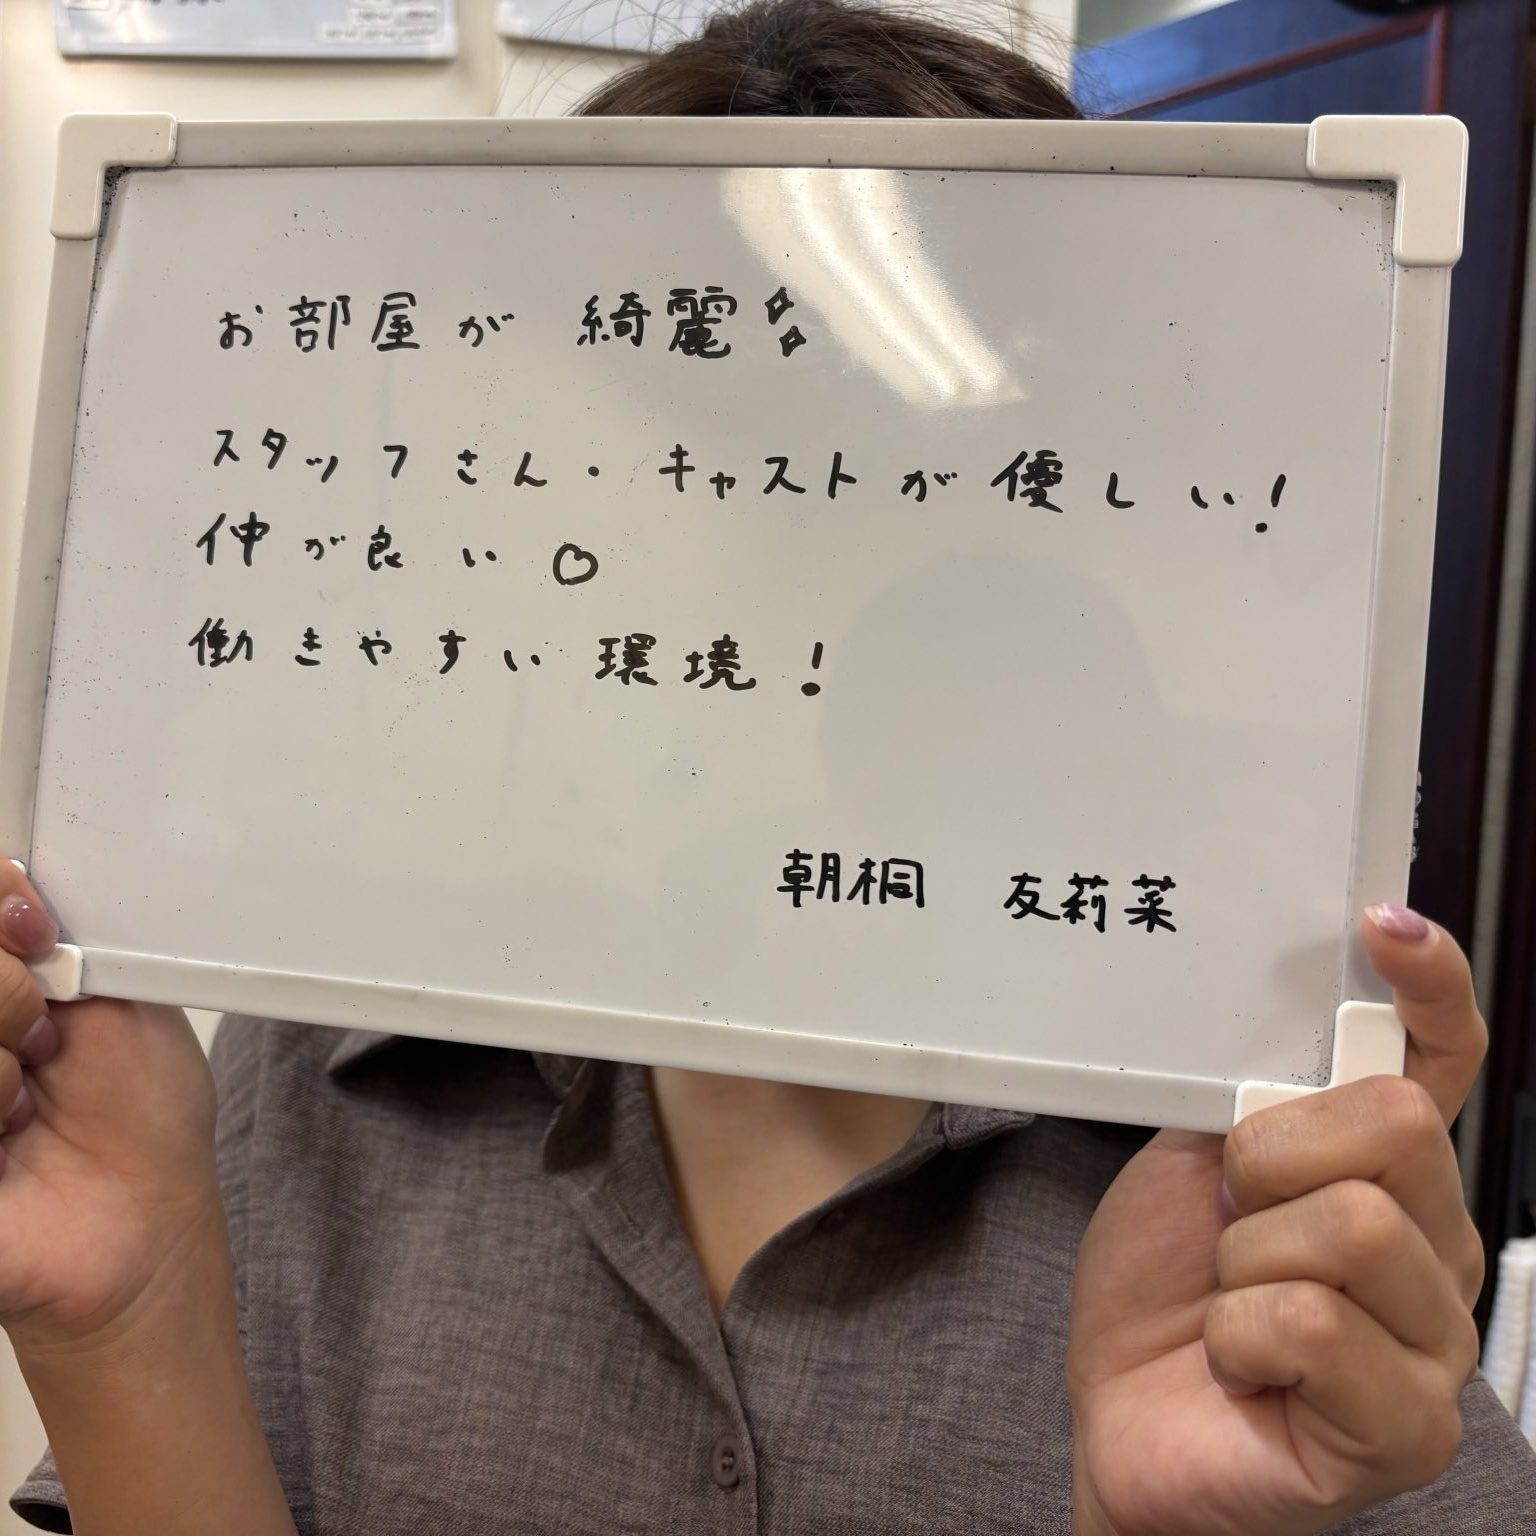 お部屋が 綺麗✨
スタッフさん・キャストが優しい!
仲が良い♡
働きやすい環境!
朝桐 友莉菜